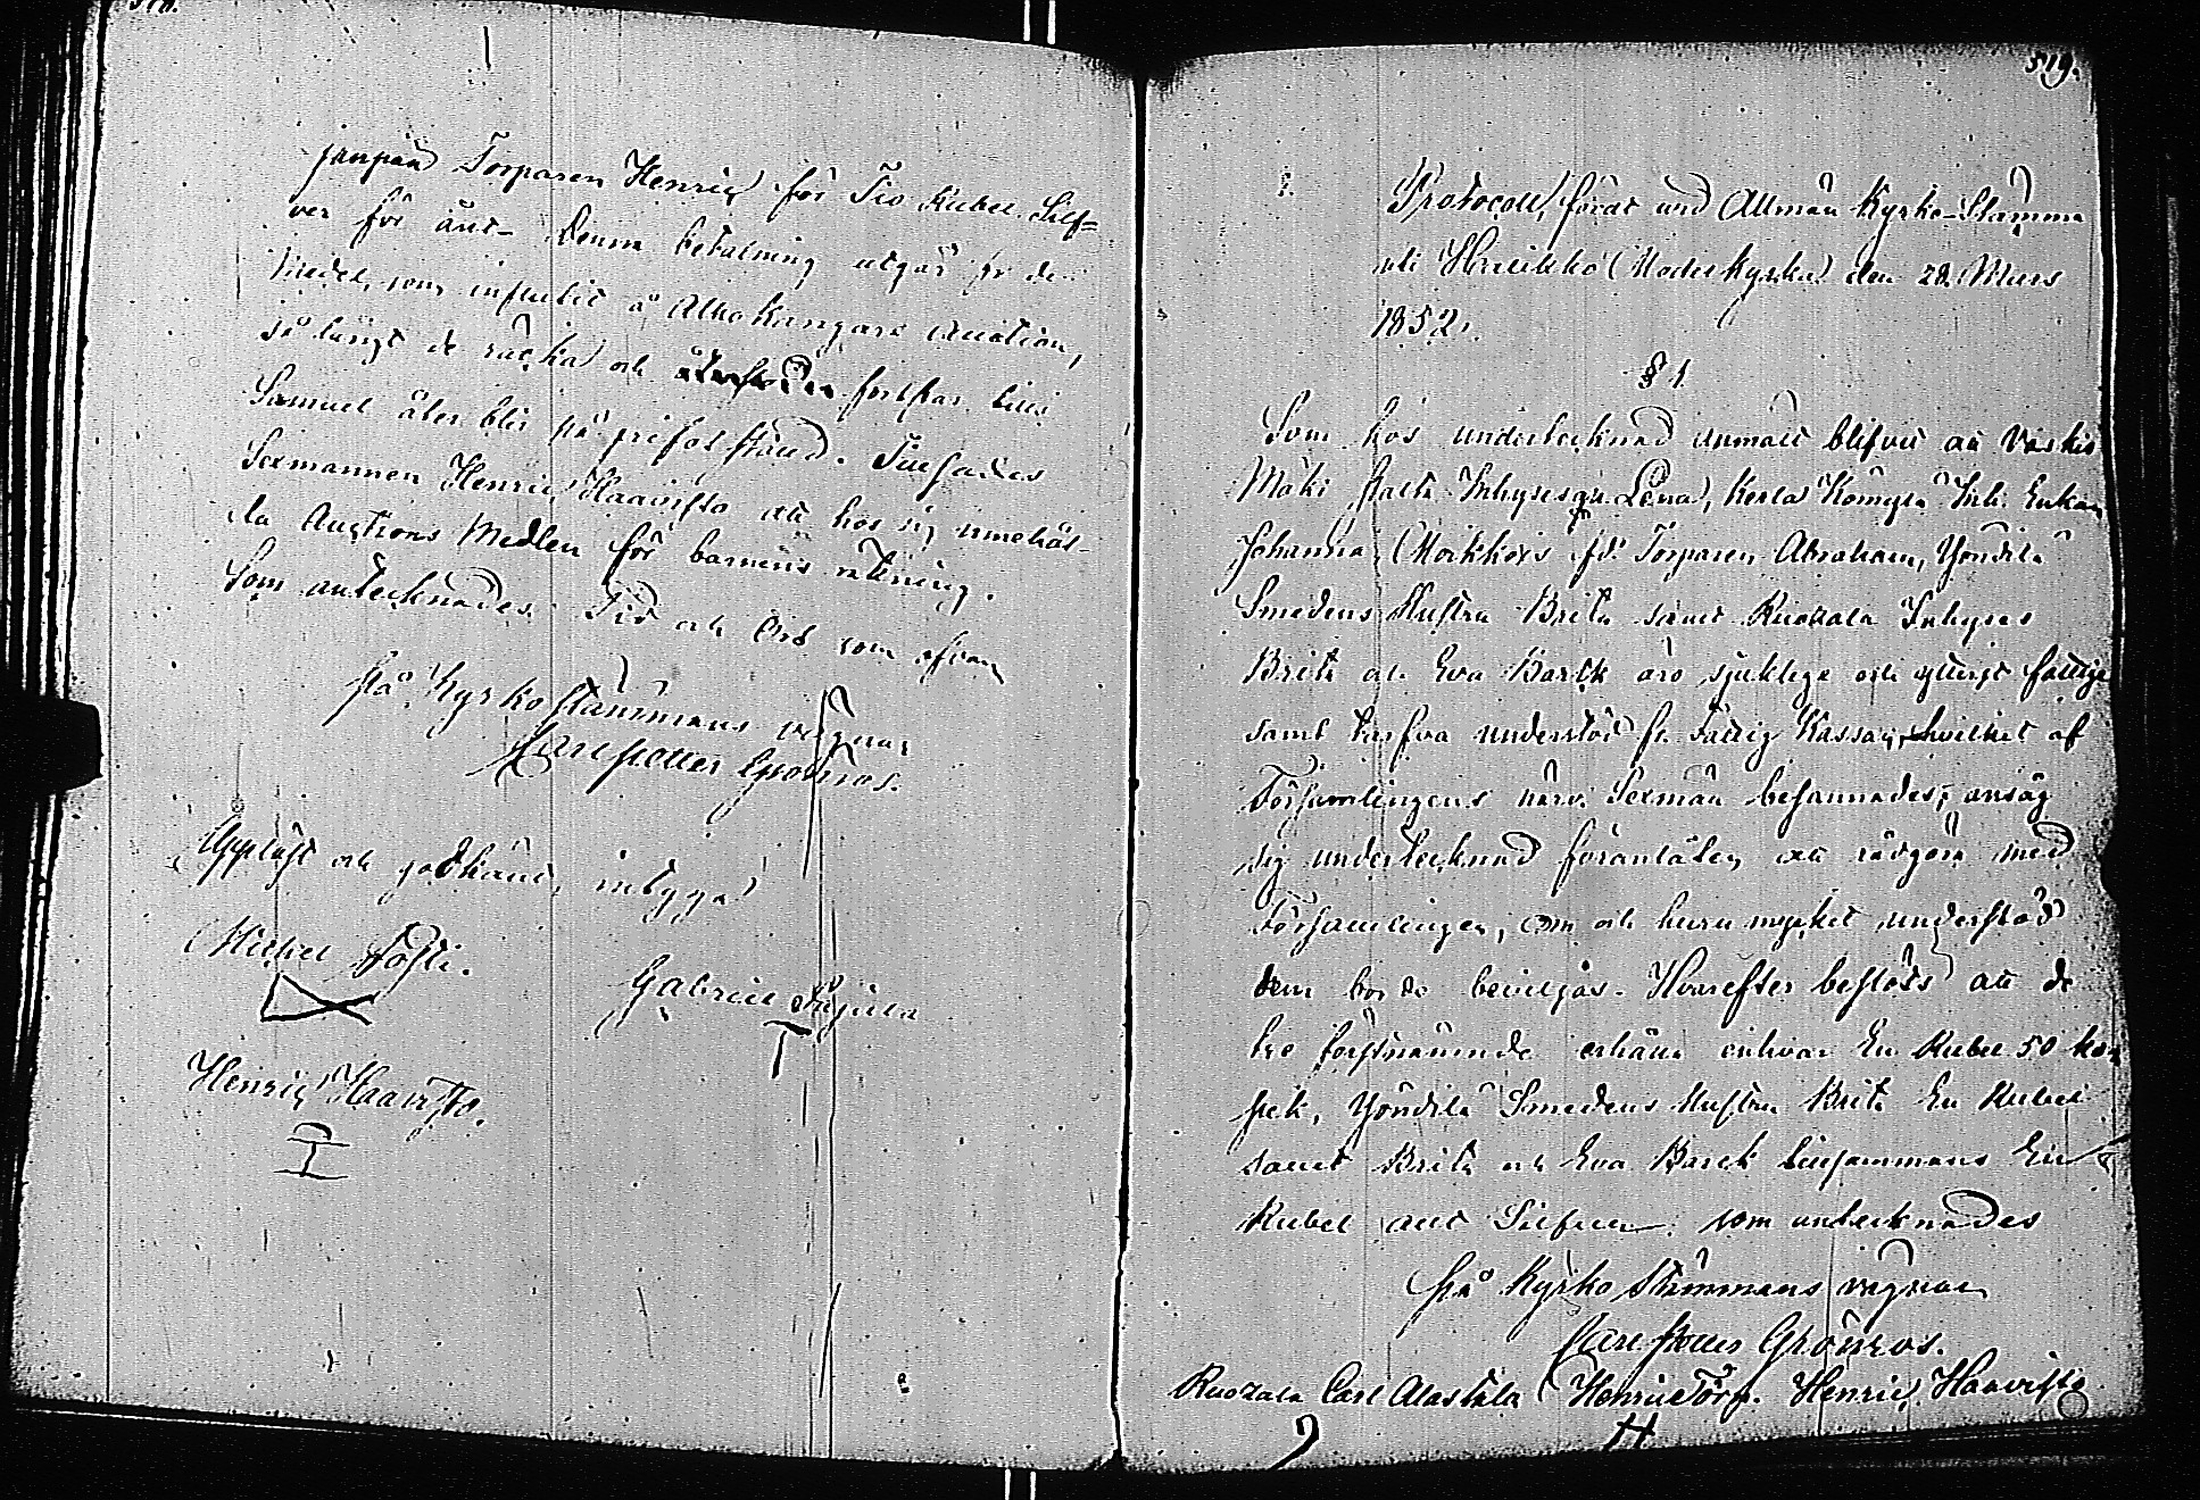 518.
Torparen Henric för Tio Rubel Silf=
ver för året. Denna betalning utgår fr de
Medel, som influtit å Alhokangars Auction,
så långt de räcka och återstoden
Samuel åter blir på Tillsades
Sexmannen Henric Haavisto att hos sig innehål-
la Auctions Medlen för barnens räkning.
Som antecknades. Tid och Ort som ofvan
På Kyrkostämmans vägnar
Carl Petter Grönroos.
Uppläst och godkändt, intyga
Michel
Gabriel
Henric Haavisto.
519.
Protocoll, fördt vid Allmän Kyrko-Stämma
uti Moderkyrka den 28 Mars
1852.
§ 1.
Som hos undertecknad anmält blifvit att
Mäki Inhyses Lena, Inh. Enkan
Johanna, fd. Torparen Abraham, Yöndilä
Smedens Hustru Brita samt Ruokala Inhyses
Brita och Eva Barck äro sjuklige och ytterst fattige
samt tarfva understöd fr. Fattig Kassan, hvilket af
Församlingens närv. Sexmän besannades; ansåg
sig undertecknad föranlåten att rådgöra med
Församlingen, om och huru mycket understöd
dem borde beviljas. Hvarefter beslöts att de
tre förstnämnde erhålla enhvar En Rubel 50 ko
pek, Yöndilä Smedens Hustru Brita En Rubel
samt Brita och Eva Barck tillsammans En
Rubel allt Silfver. som antecknades
På Kyrko Stämmans vägnar
Carl Petter Grönroos.
Ruokala Carl Alastalo Henric Törf. Henric Haavisto